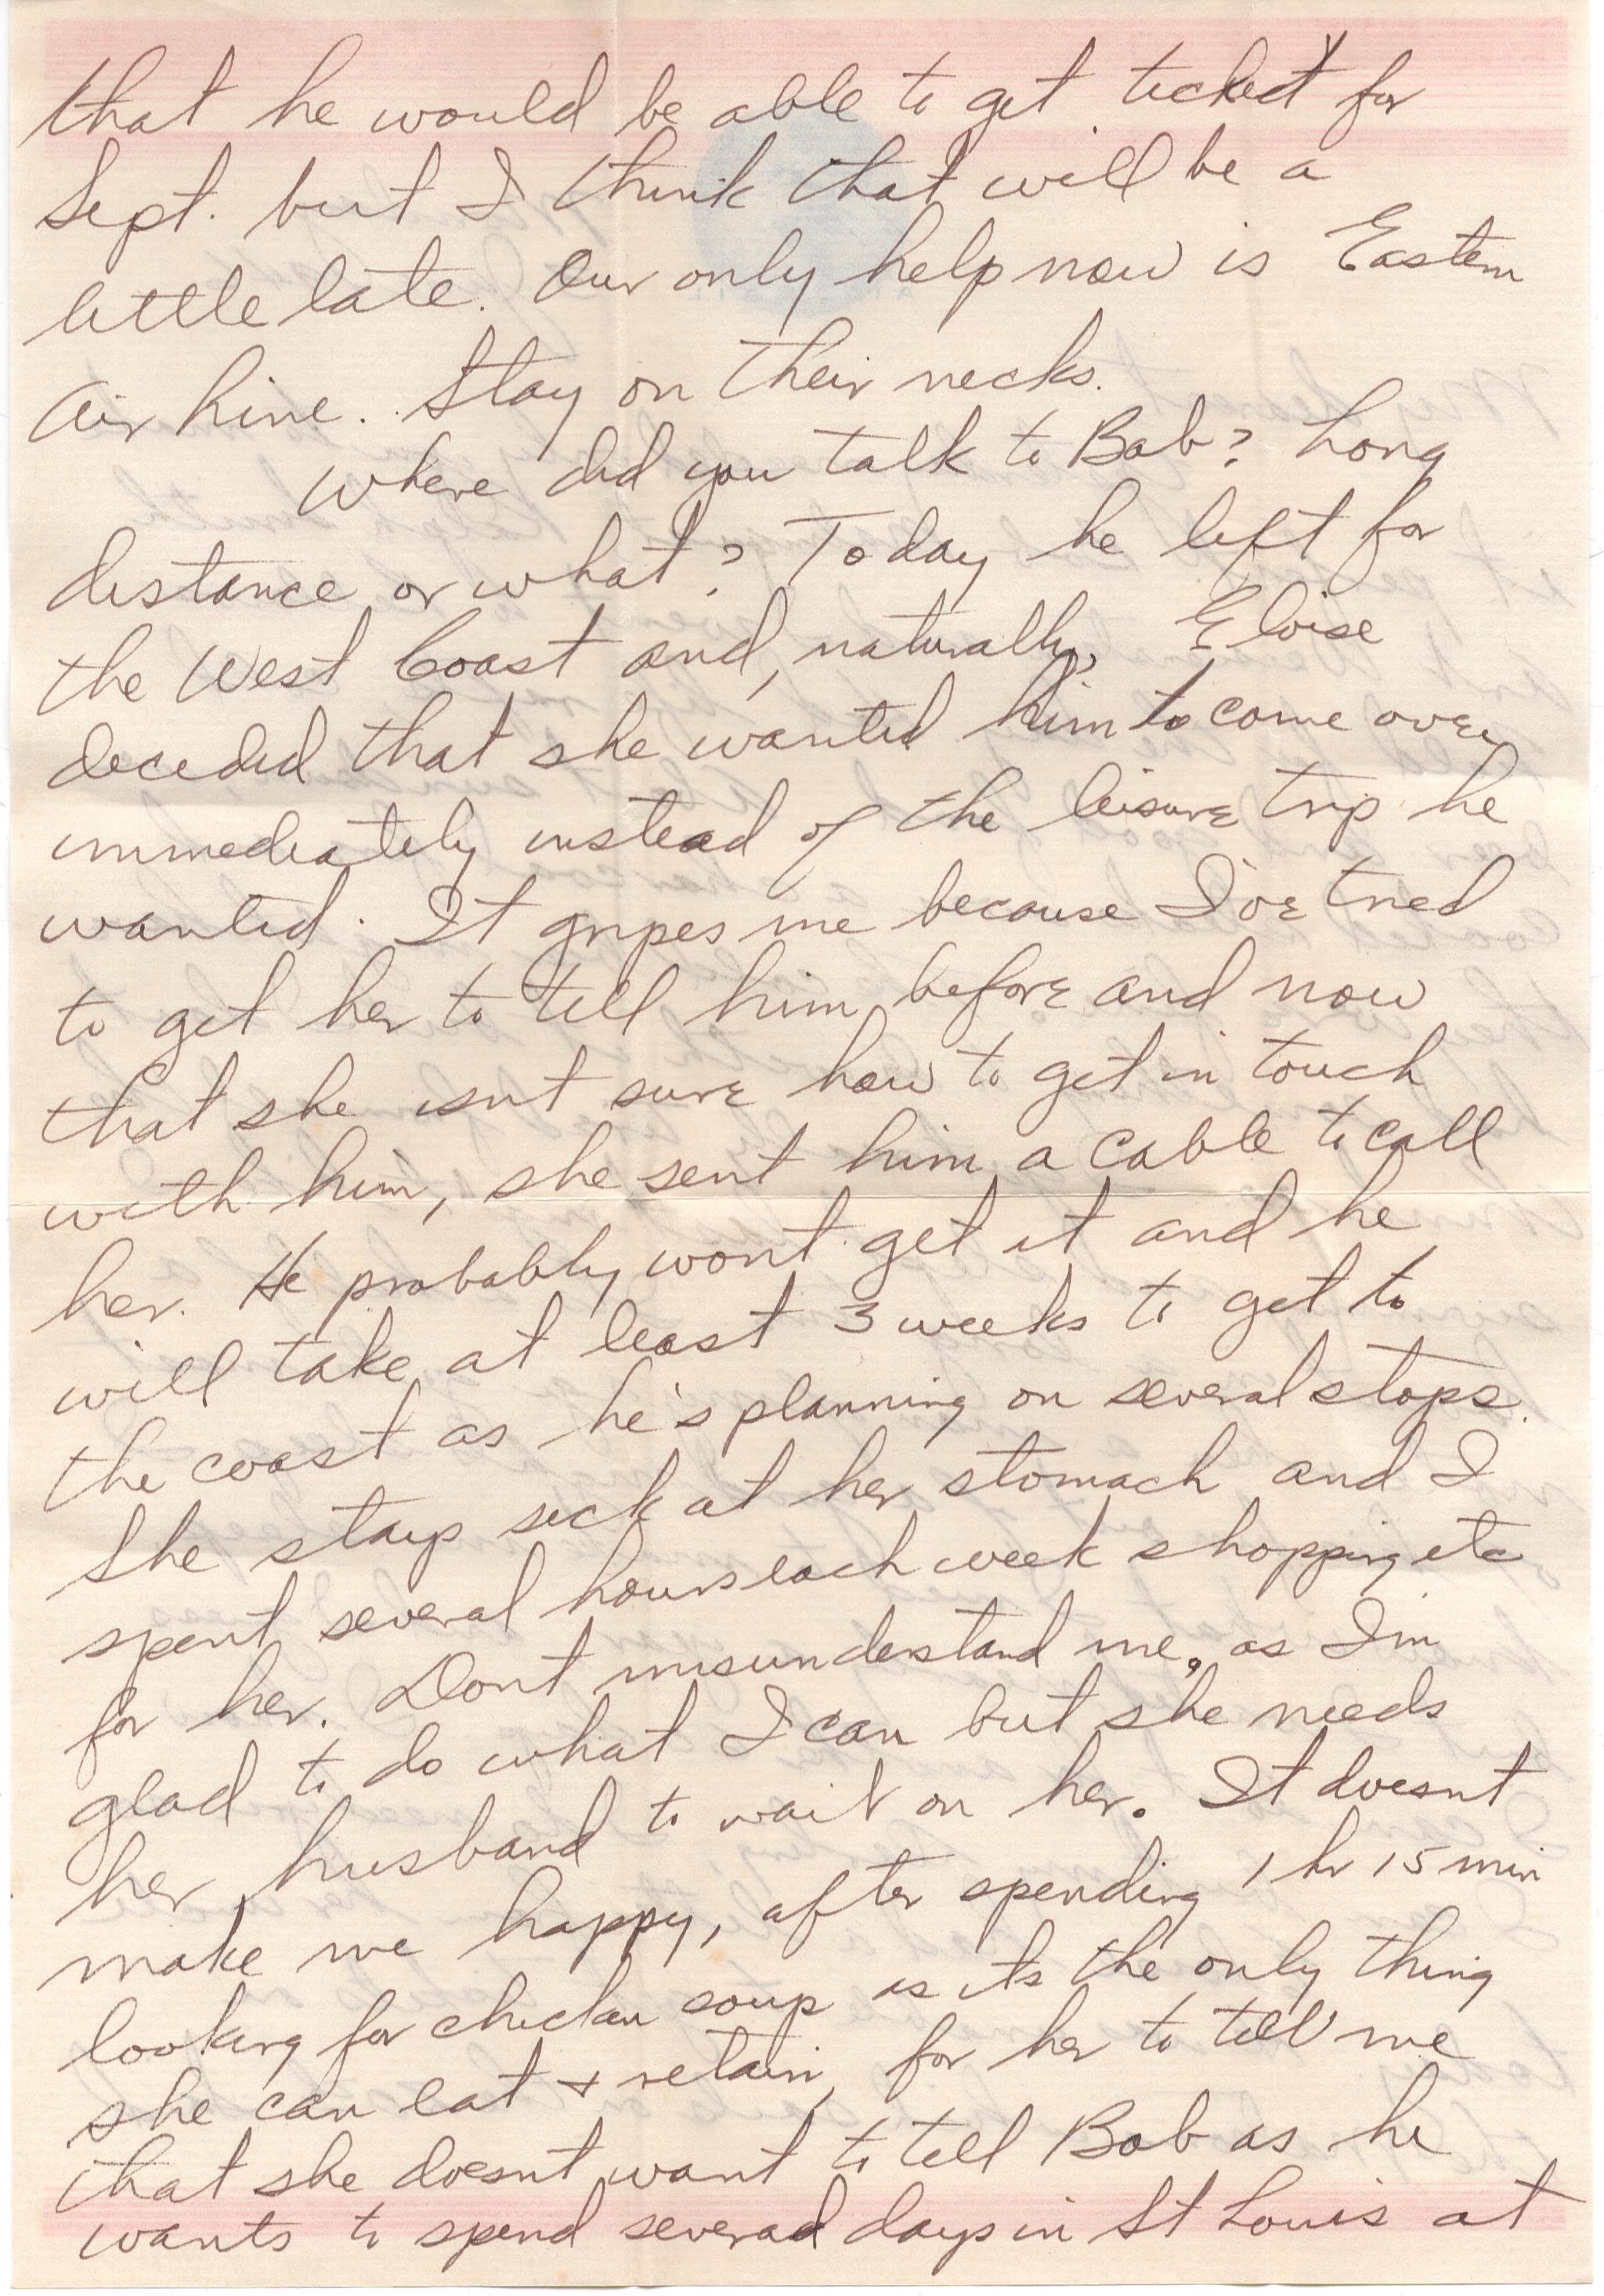 that he would be able to get ticket for
Sept. but I think that will be a
little late. Our only help now is Eastern
Air Line. Stay on their necks.
Where did you talk to Bob? Long
distance or what? Today he left for
the West Coast and, naturally, Eloise
decided that she wanted him to come over
immediately instead of the leisure trip he
wanted. It gripes me because I've tried
to get her to tell him before and now
that she isnt sure how to get in touch
with him, she sent him a cable to call
her. He probably wont get it and he
will take at least 3 weeks to get to
the coast as he's planning on several stops.
She stays sick at her stomach and I
spent several hours each week shopping etc
for her. Dont misunderstand me, as I'm
glad to do what I can but she needs
her husband to wait on her. It doesnt
make me happy, after spending 1 hr 15 min
looking for chicken soup as its the only thing
she can eat + retain, for her to tell me
that she doesnt want to tell Bob as he
wants to spend several days in St Louis at